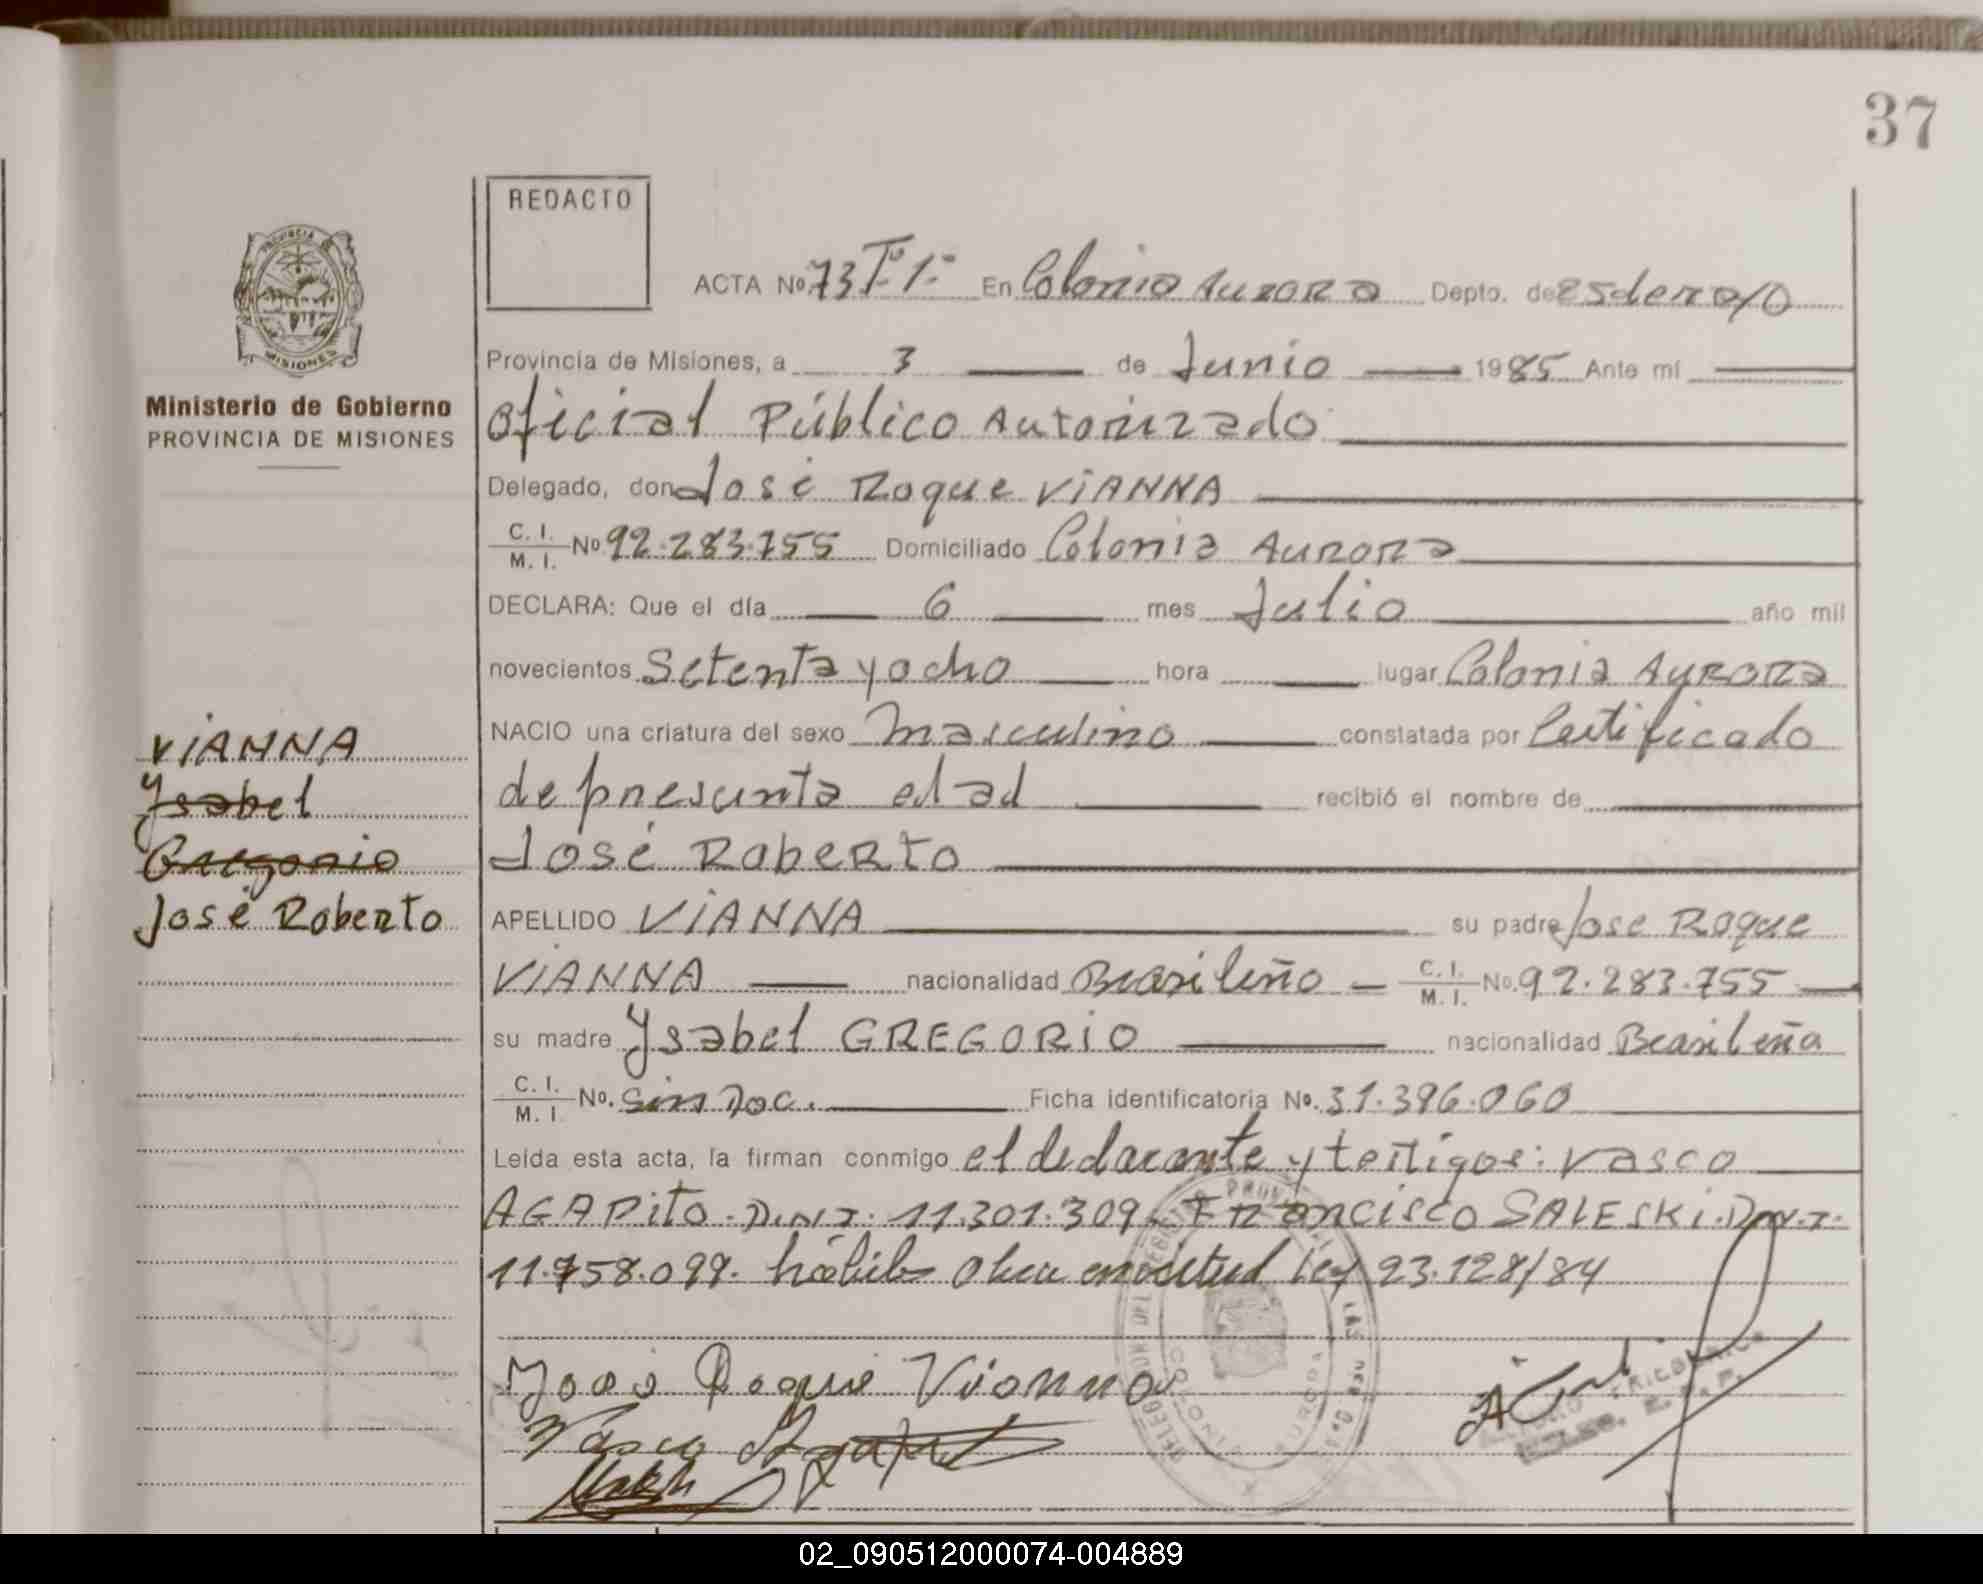 37
REDACTO
ACTA Nº 73 Tº 1º En Colonia Aurora Depto. de 25 de mayo
Provincia de Misiones, a 3 de Junio 1985 Ante mí
Oficial Público Autorizado
Delegado, don José Roque VIANNA
C. I. / M. I. Nº 92.283.755 Domiciliado Colonia Aurora
DECLARA: Que el día 6 mes Julio año mil
novecientos Setenta y ocho hora lugar Colonia Aurora
NACIO una criatura del sexo Masculino constatada por Certificado
de presunta edad recibió el nombre de
José Roberto
APELLIDO VIANNA su padre José Roque
VIANNA nacionalidad Brasileño C. I. / M. I. No. 92.283.755
su madre Ysabel GREGORIO nacionalidad Brasileña
C. I. / M. I. No. Sin Doc. Ficha identificatoria Nº. 31.396.060
Leída esta acta, la firman conmigo el declarante y testigos: Vasco
AGAPito. D.N.I. 11.301.309. Francisco SALESKi. D.N.I.
11.758.099. hábiles Obra en virtud Ley 23.128/84
José Roque Vianna
Vasco Agapito
PROVINCIA DE
MISIONES
Ministerio de Gobierno
PROVINCIA DE MISIONES
VIANNA
Ysabel
Gregorio
José Roberto
02_090512000074-004889